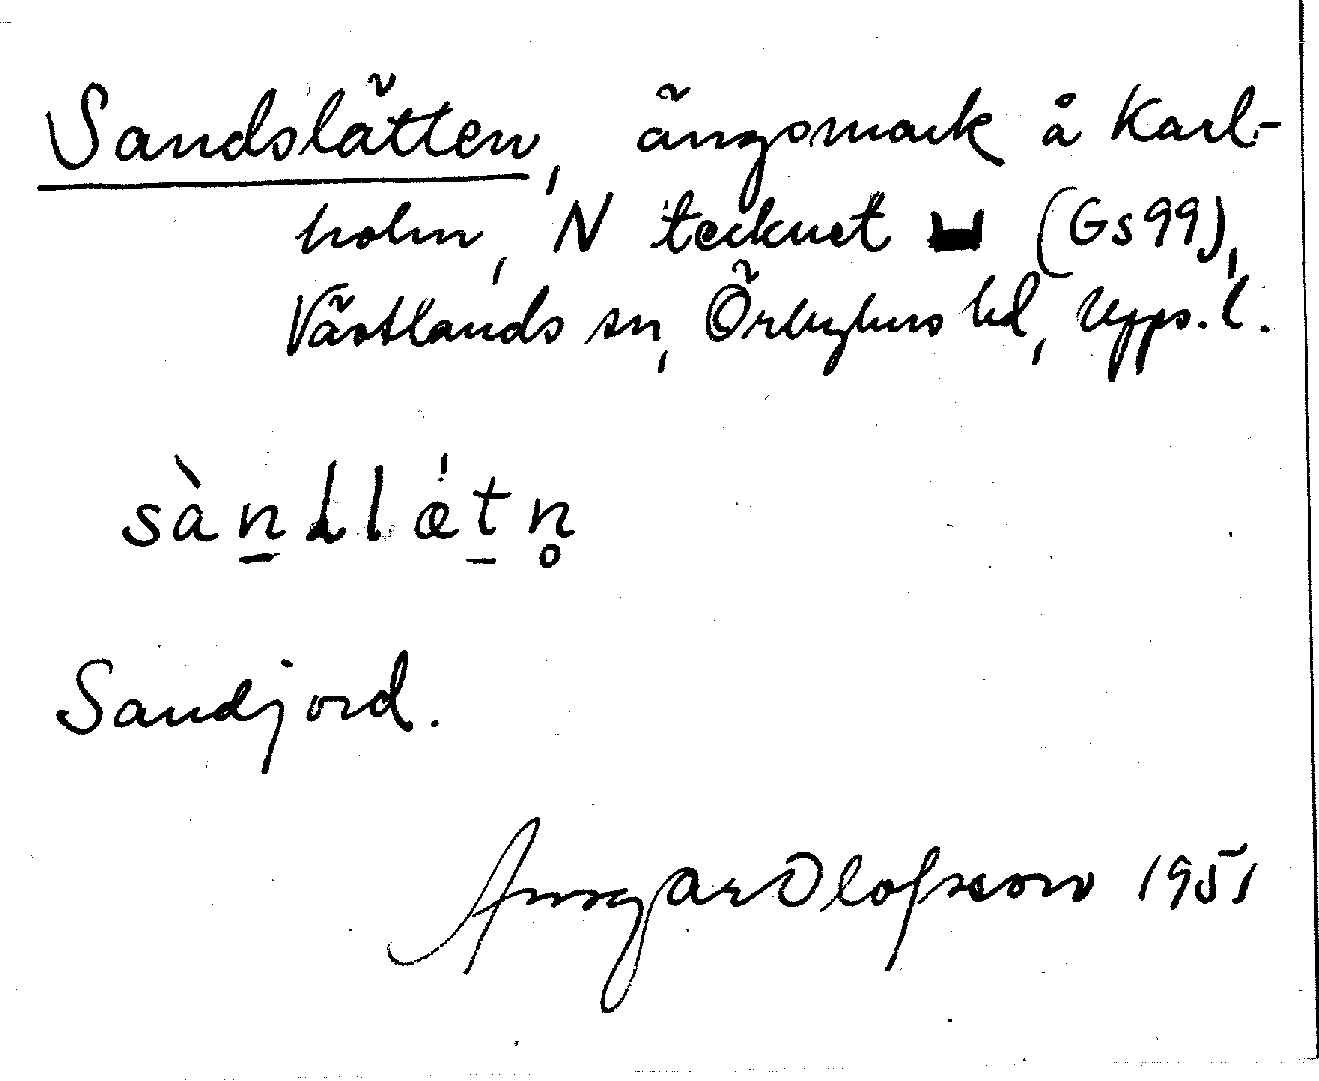 Sandslätten, ängsmark å Karl-
holm, N tecknet (Gs99),
Västlands sn, Örbyhus hd, Upps. l.
sàn̲dlæ̍t̲n̥
Sandjord.
Ansgar Olofsson 1951